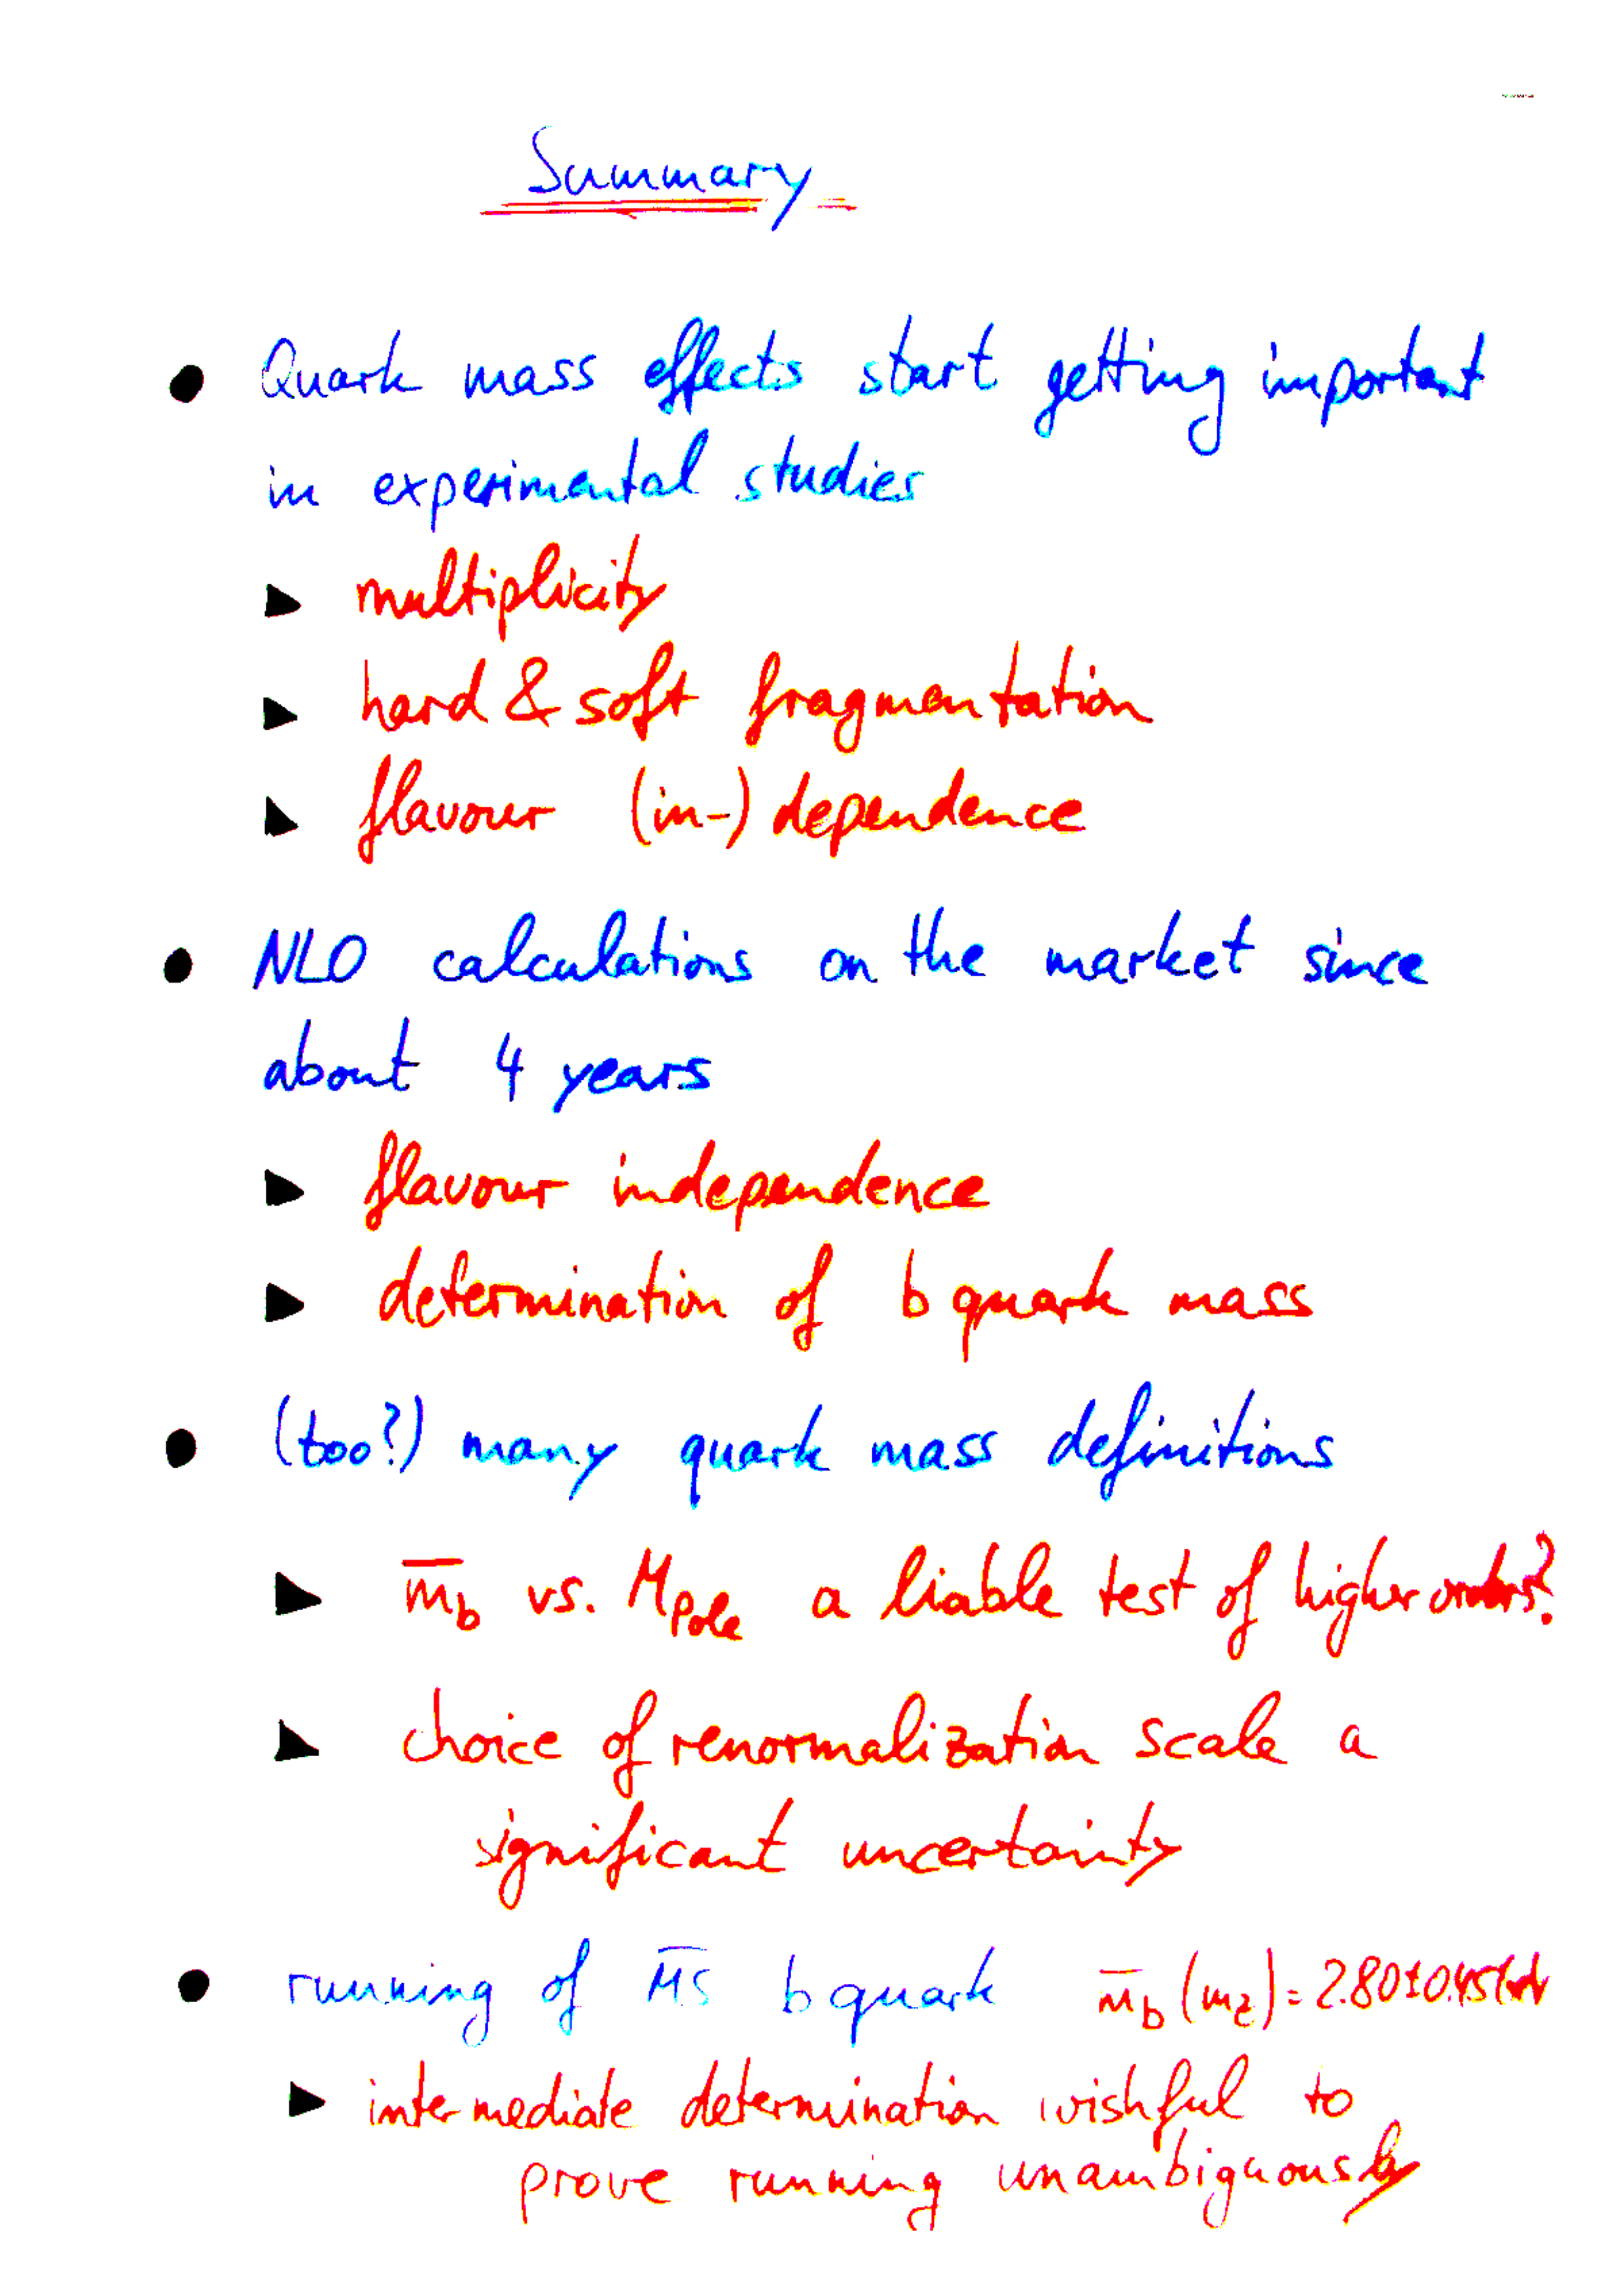 Summary
• Quark mass effects start getting important
in experimental studies
► multiplicity
► hard & soft fragmentation
► flavour (in-)dependence
• NLO calculations on the market since
about 4 years
► flavour independence
► determination of b quark mass
• (too?) many quark mass definitions
► m̅b vs. MPole a liable test of higher orders?
► choice of renormalization scale a
significant uncertainty
• running of M̅S̅ b quark m̅b(mZ) = 2.80±0.45
► intermediate determination wishful to
prove running unambiguously